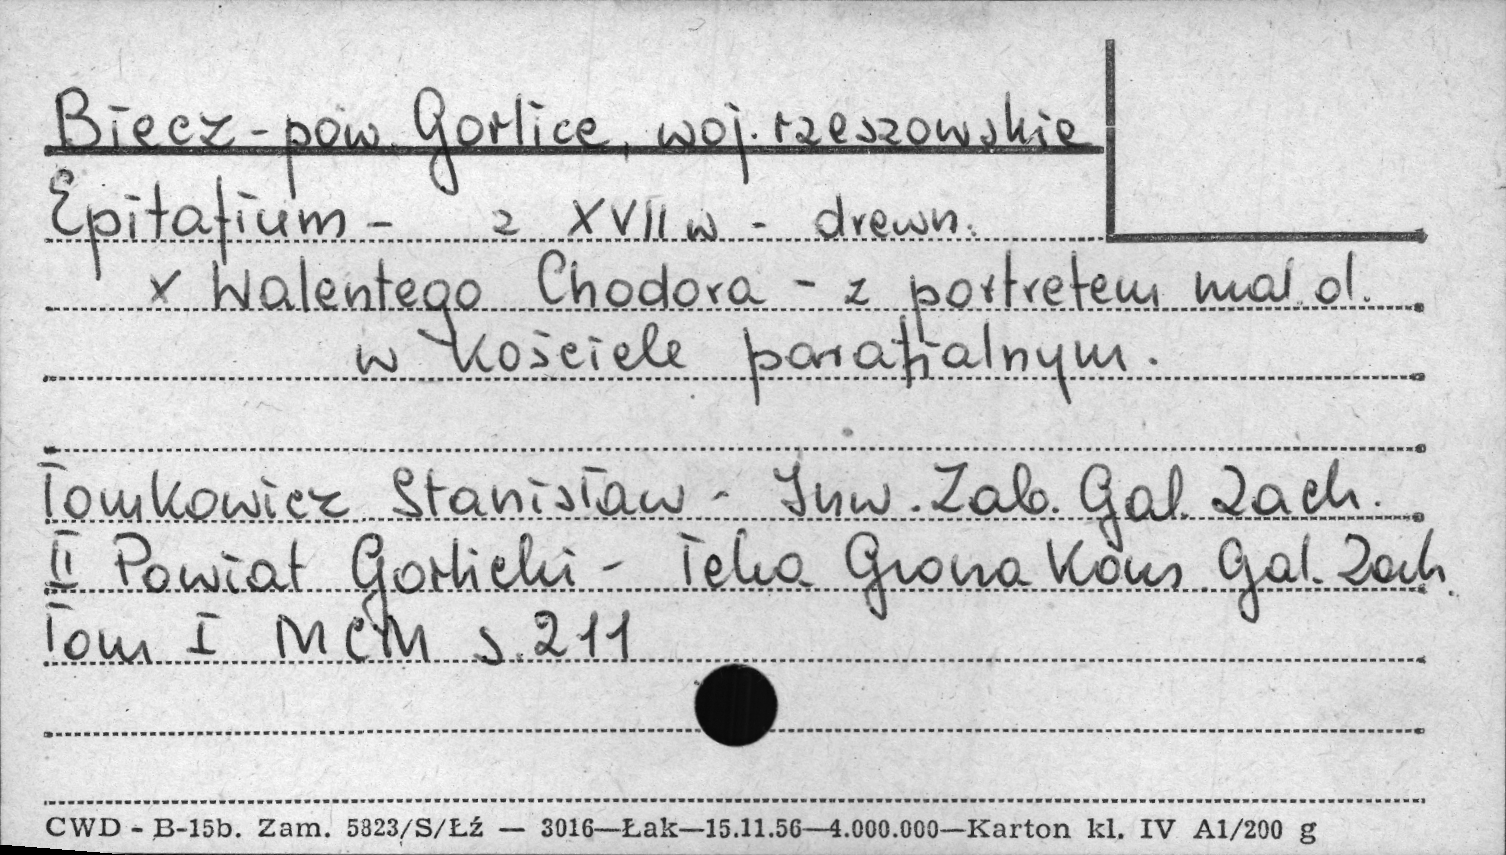 Biecz - pow. Gorlice, woj. rzeszowskie
Epitafium - z XVII w - drewn.
x Walentego Chodora - z portretem mal. ol.
w kościele parafialnym.
Tomkowicz Stanisław - Inw. Zab. Gal. Zach.
II Powiat Gorlicki - Teka Grona Kons Gal. Zach.
Tom I MCM s. 211
CWD - B-15b. Zam. 5823/S/Łź — 3016—Łak—15.11.56—4.000.000—Karton kl. IV A1/200 g